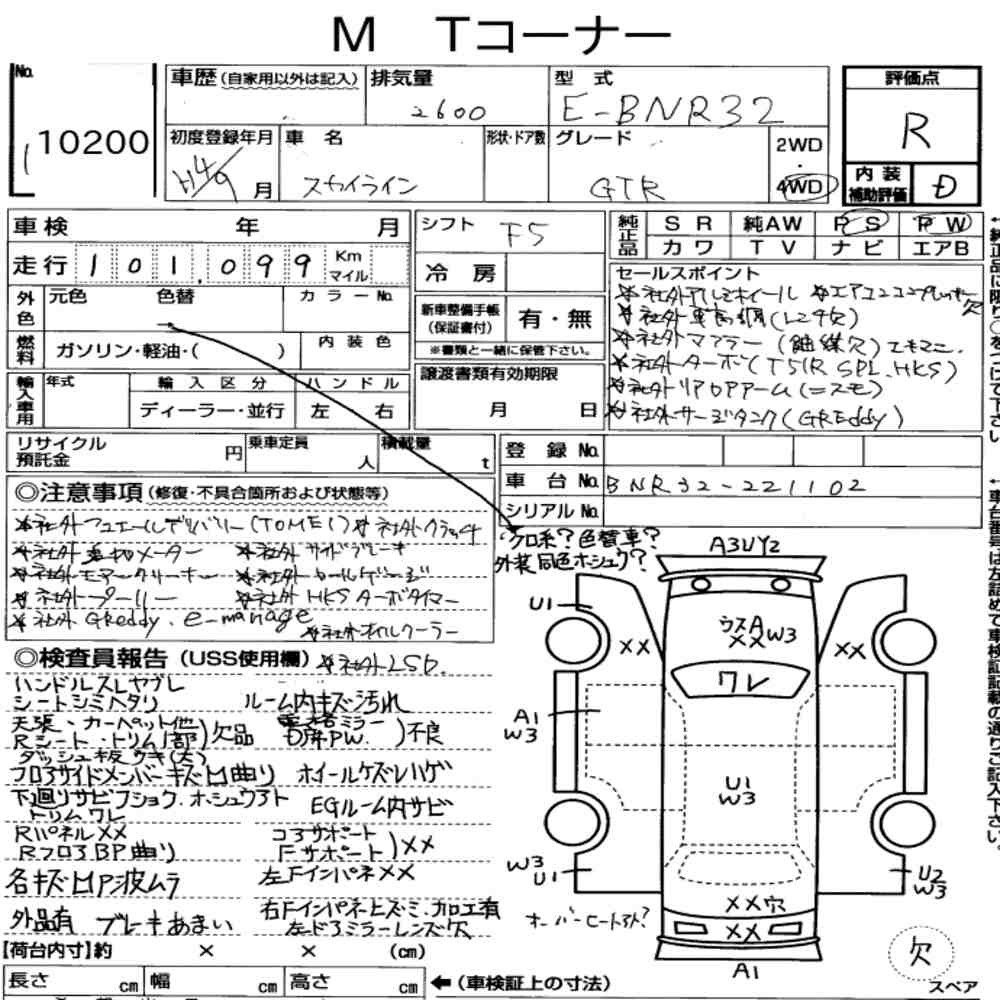 M Tコーナー
No.
10200
車歴 (自家用以外は記入)
排気量
2600
型 式
E-BNR32
評価点
R
初度登録年月
H4/9 月
車 名
スカイライン
形状・ドア数
グレード
GTR
2WD
・
4WD
内 装
補助評価
D
車検 年 月
走行 101,099 Km マイル
外色
元色 色替 カラーNo.
燃料
ガソリン・軽油・( )
内 装 色
輸入車用
年式
輸 入 区 分
ディーラー・並行
ハ ン ド ル
左 右
シフト
F5
冷 房
新車整備手帳
(保証書付)
有・無
※書類と一緒に保管下さい。
譲渡書類有効期限
月 日
純正品
S R 純AW P S P W
カ ワ T V ナ ビ エアB
セールスポイント
社外アルミホイール エアコンコンプレッサー欠
社外車高調(レンチ欠)
社外マフラー (触媒欠) エキマニ.
社外ターボ(T51R SPL.HKS)
社外リアロアアーム(ニスモ)
社外サージタンク(GREddy)
リサイクル
預託金
円
乗車定員
人
積載量
t
登 録 No.
車 台 No.
BNR32-221102
シリアルNo.
◎注意事項 (修復・不具合箇所および状態等)
社外フューエルデリバリー(TOMEI) 社外クラッチ
社外追加メーター 社外サイドブレーキ
社外エアークリーナー 社外ロールゲージ
社外プーリー 社外HKSターボタイマー
社外GReddy. e-manage
社外オイルクーラー
クロ系?色替車?
外装同色ホシュウ?
◎検査員報告 (USS使用欄) 社外LSD.
ハンドルスレヤブレ
シートシミヘタリ ルーム内キズ汚れ
天張、カーペット他
Rシート・トリム1部)欠品
ミラー
D席PW. )不良
ダッシュ板ウキ(大)
フロアサイドメンバーキズ凹曲り ホイールケズレハゲ
下廻りサビフショク.ホシュウアト
トリムワレ
EGルーム内サビ
RパネルXX
RフロアBP曲り
コアサポート
Fサポート )XX
各キズ凹ア波ムラ
左FインパネXX
外品有 ブレーキあまい
右Fインパネ上ズミ.加工有
左ドアミラーレンズ欠
【荷台内寸】約 × × (cm)
長さ cm 幅 cm 高さ cm
←(車検証上の寸法)
A3UY2
U1
XX
ウスA
XXW3
XX
ワレ
A1
W3
U1
W3
W3
U1
U2
W3
XX穴
XX
A1
オーバーヒートアト?
欠
スペア
←純正品に限り○をつけて下さい。
←車台番号は左詰めで車検証記載の通りご記入下さい。